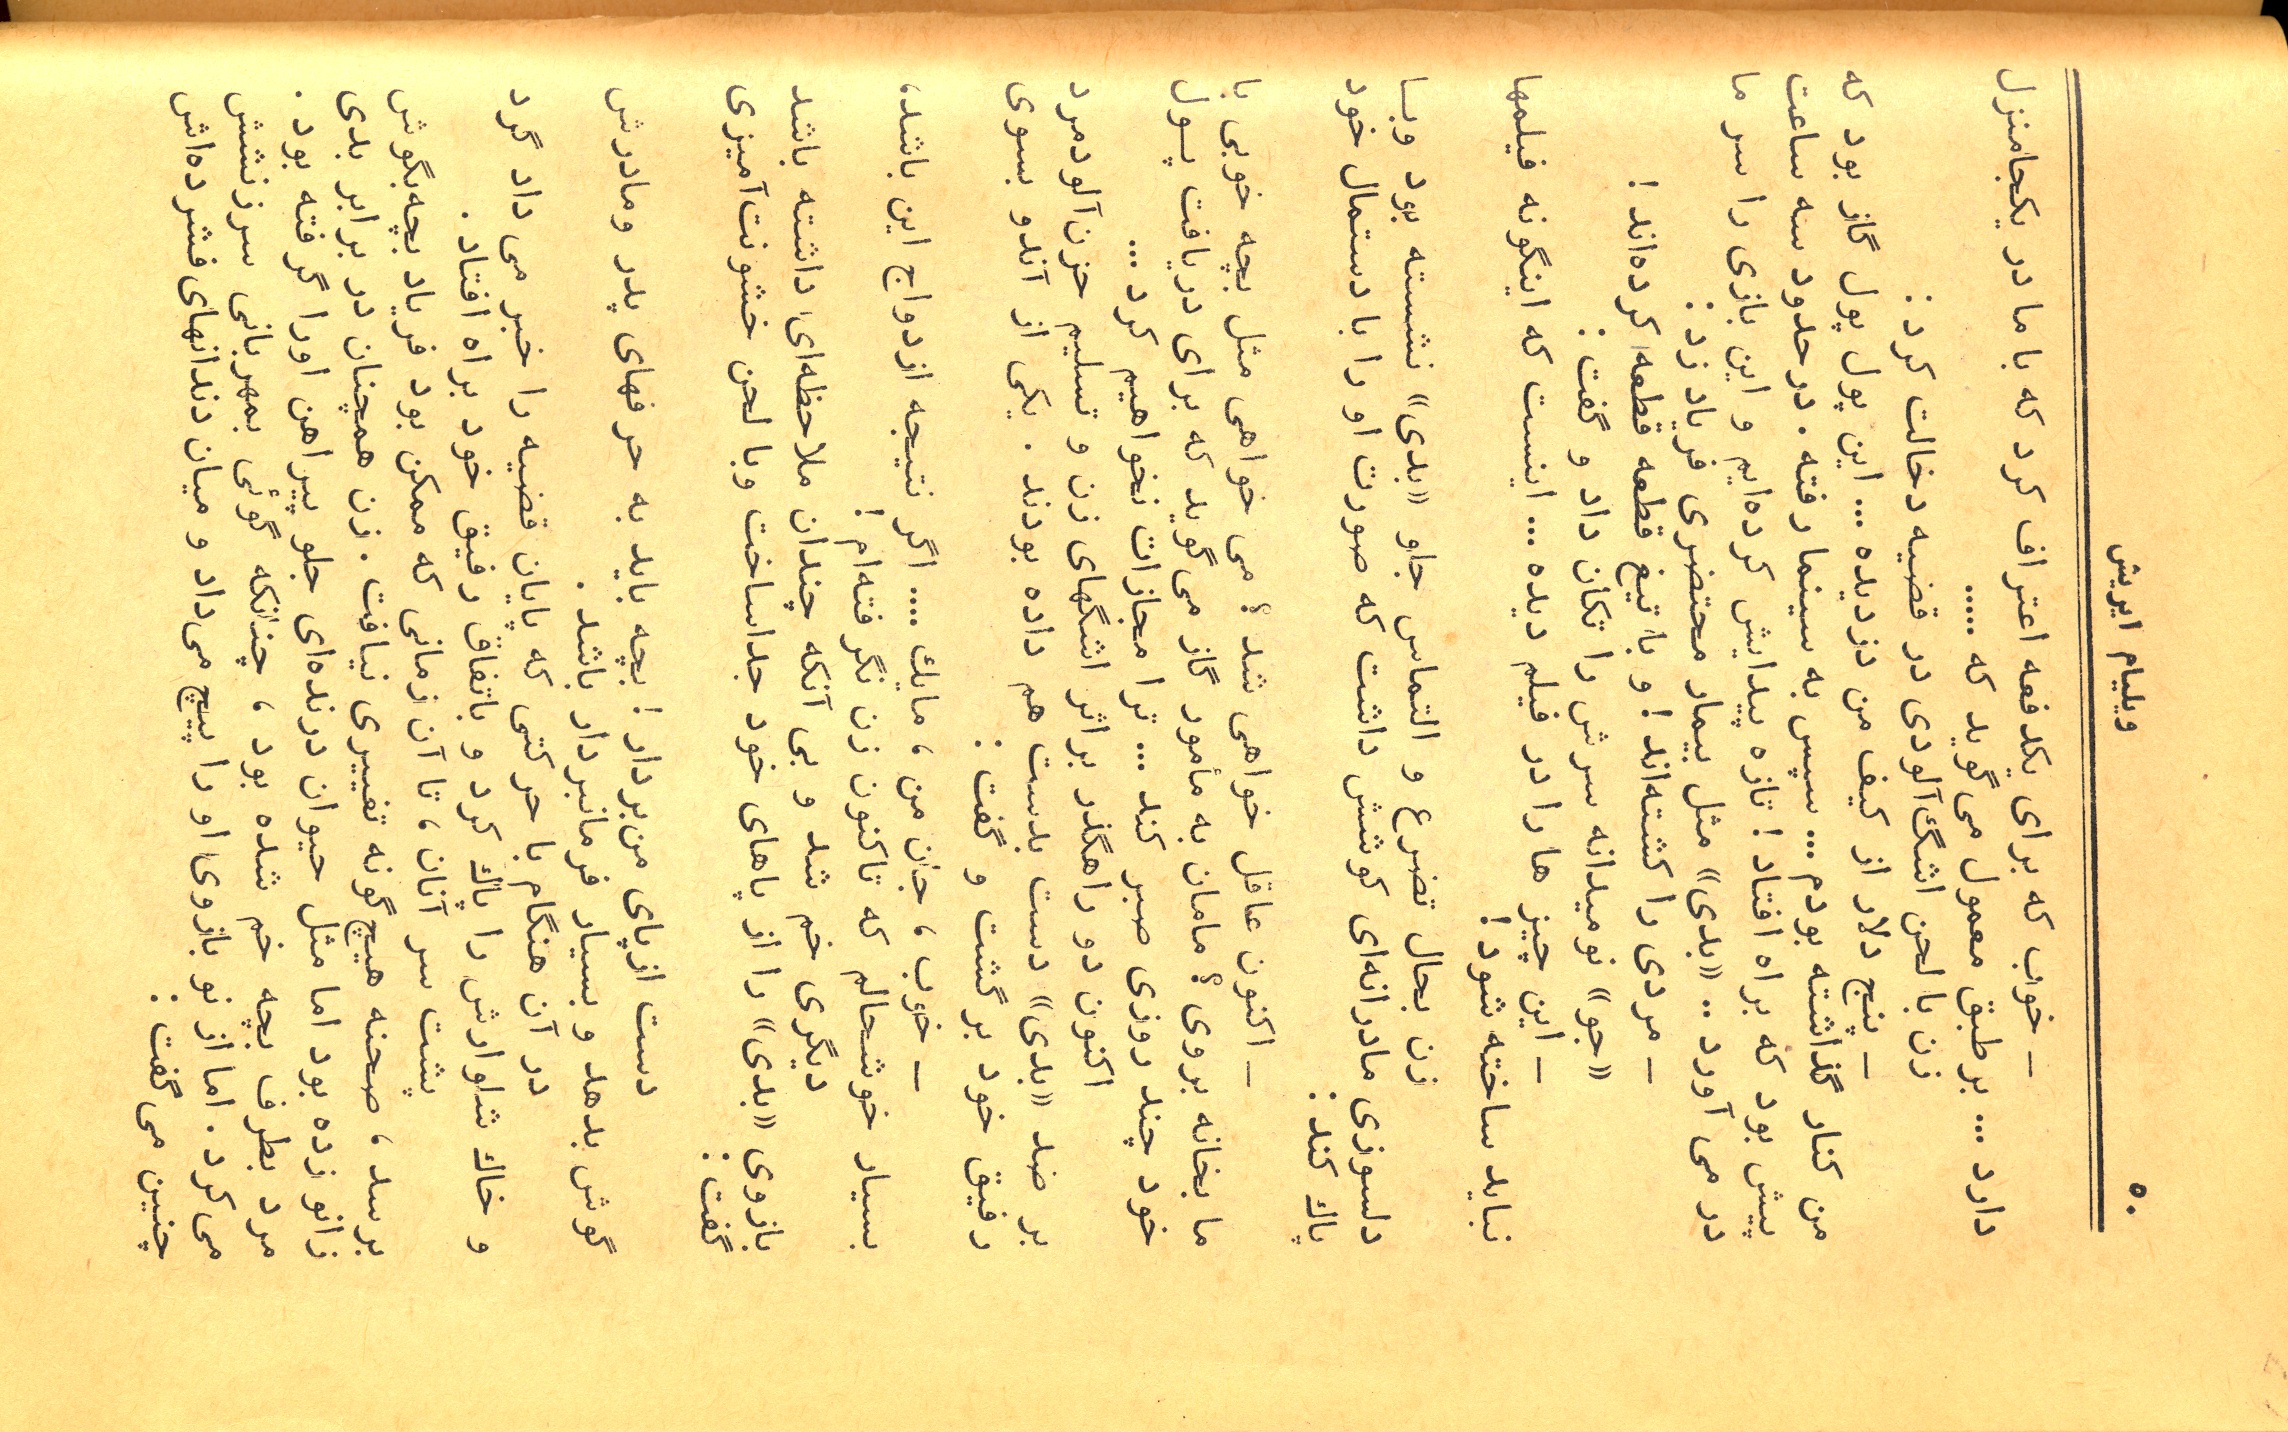 ۵۰
ویلیام ایریش
ــ خوب که برای یکدفعه اعتراف کرد که با ما در یکجامنزل
دارد ... بر طبق معمول می گوید که .....
زن با لحن اشگ‌آلودی در قضیه دخالت کرد :
ــ پنج دلار از کیف من دزدیده ... این پول پول گاز بود که
من کنار گذاشته بودم ... سپس به سینما رفته . در حدود سه ساعت
پیش بود که براه افتاد ! تازه پیدایش کرده‌ایم و این بازی را سر ما
در می آورد .. «بدی» مثل بیمار محتضری فریاد زد :
ــ مردی را کشته‌اند ! و با تیغ قطعه قطعه‌ا کرده‌اند !
«جو» نومیدانه سرش را تکان داد و گفت :
ــ این چیز ها را در فیلم دیده ... اینست که اینگونه فیلمها
نباید ساخته شود !
زن بحال تضرع و التماس جلو «بدی» نشسته بود وبـا
دلسوزی مادرانه‌ای کوشش داشت که صورت او را با دستمال خود
پاك کند :
ــ اکنون عاقل خواهی شد ؟ می خواهی مثل بچه خوبی با
ما بخانه بروی ؟ مامان به مأمور گاز می گوید که برای دریافت پـول
خود چند روزی صبر کند ... ترا مجازات نخواهیم کرد ...
اکنون دو راهگذر بر اثر اشگهای زن و تسلیم حزن‌آلودمرد
بر ضد «بدی» دست بدست هم داده بودند . یکی از آندو بسوی
رفیق خود برگشت و گفت :
ــ خوب ، جان من ، مایك .... اگر نتیجه ازدواج این باشد،
بسیار خوشحالم که تاکنون زن نگرفته‌ام !
دیگری خم شد و بی آنکه چندان ملاحظه‌ای داشته باشد
بازوی «بدی» را از پاهای خود جداساخت وبا لحن خشونت‌آمیزی
گفت :
دست از پای من بردار ! بچه باید به حرفهای پدر ومادرش
گوش بدهد و بسیار فرمانبردار باشد .
در آن هنگام با حرکتی که پایان قضیه را خبر می داد گرد
و خاك شلوارش را پاك کرد و باتفاق رفیق خود براه افتاد .
پشت سر آنان ، تا آن زمانی که ممکن بود فریاد بچه‌بگوش
برسد ، صحنه هیچ گونه تغییری نیافت . زن همچنان در برابر بدی
زانو زده بود اما مثل حیوان درنده‌ای جلو پیراهن اورا گرفته بود .
مرد بطرف بچه خم شده بود ، چنانکه گوئی بمهربانی سرزنشش
می کرد . اما از نو بازوی او را پیچ می‌داد و میان دندانهای‌فشرده‌اش
چنین می گفت :